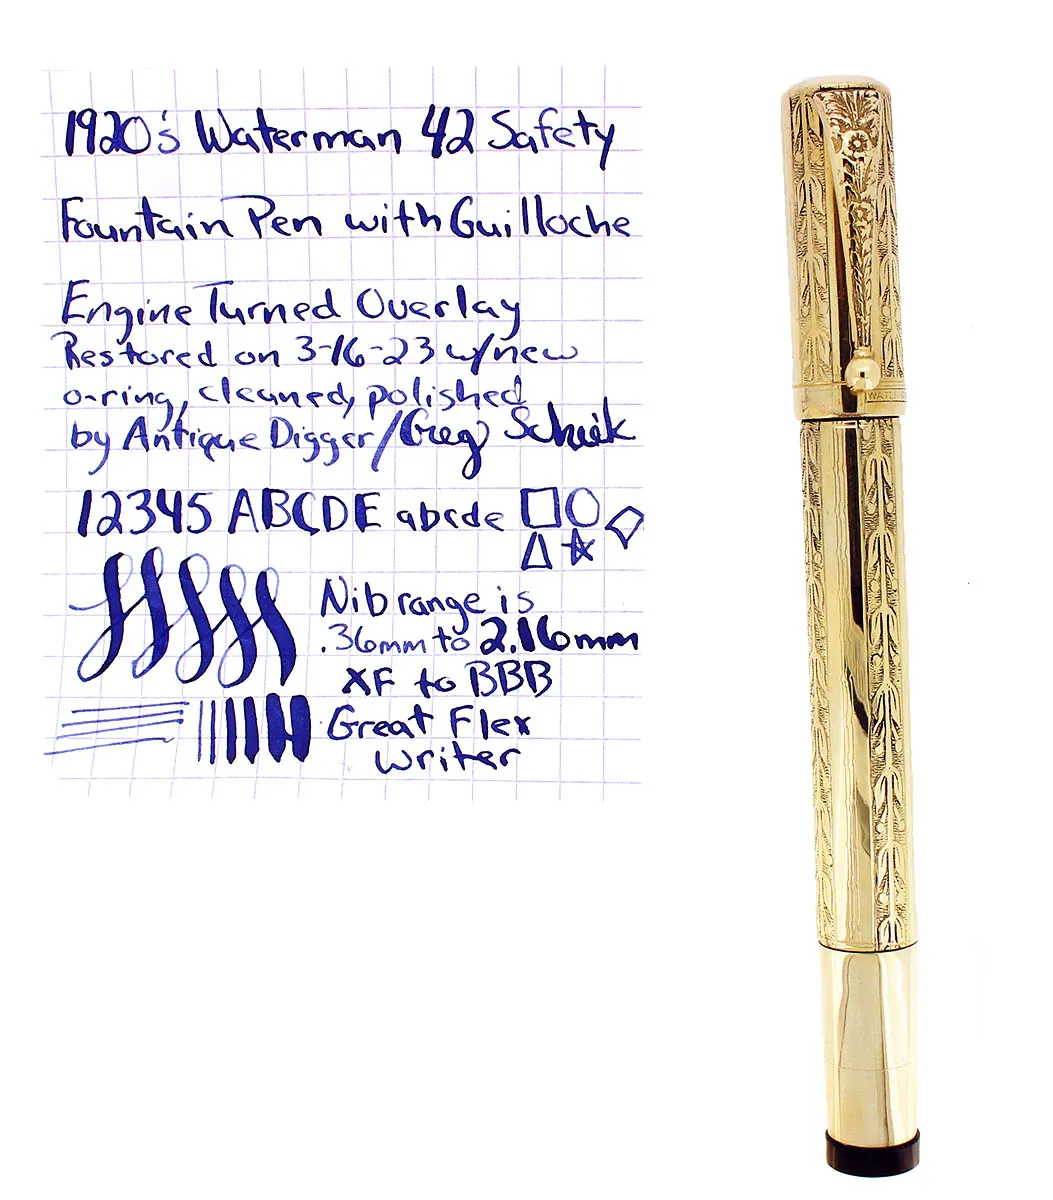 1920's Waterman 42 Safety
Fountain Pen with Guilloche
Engine Turned Overlay
Restored on 3-16-23 w/new
o-ring, cleaned, polished
by Antique Digger/Greg
12345 ABCDE abcde
Nib range is
.36mm to 2.16mm
XF to BBB
Great Flex
Writer